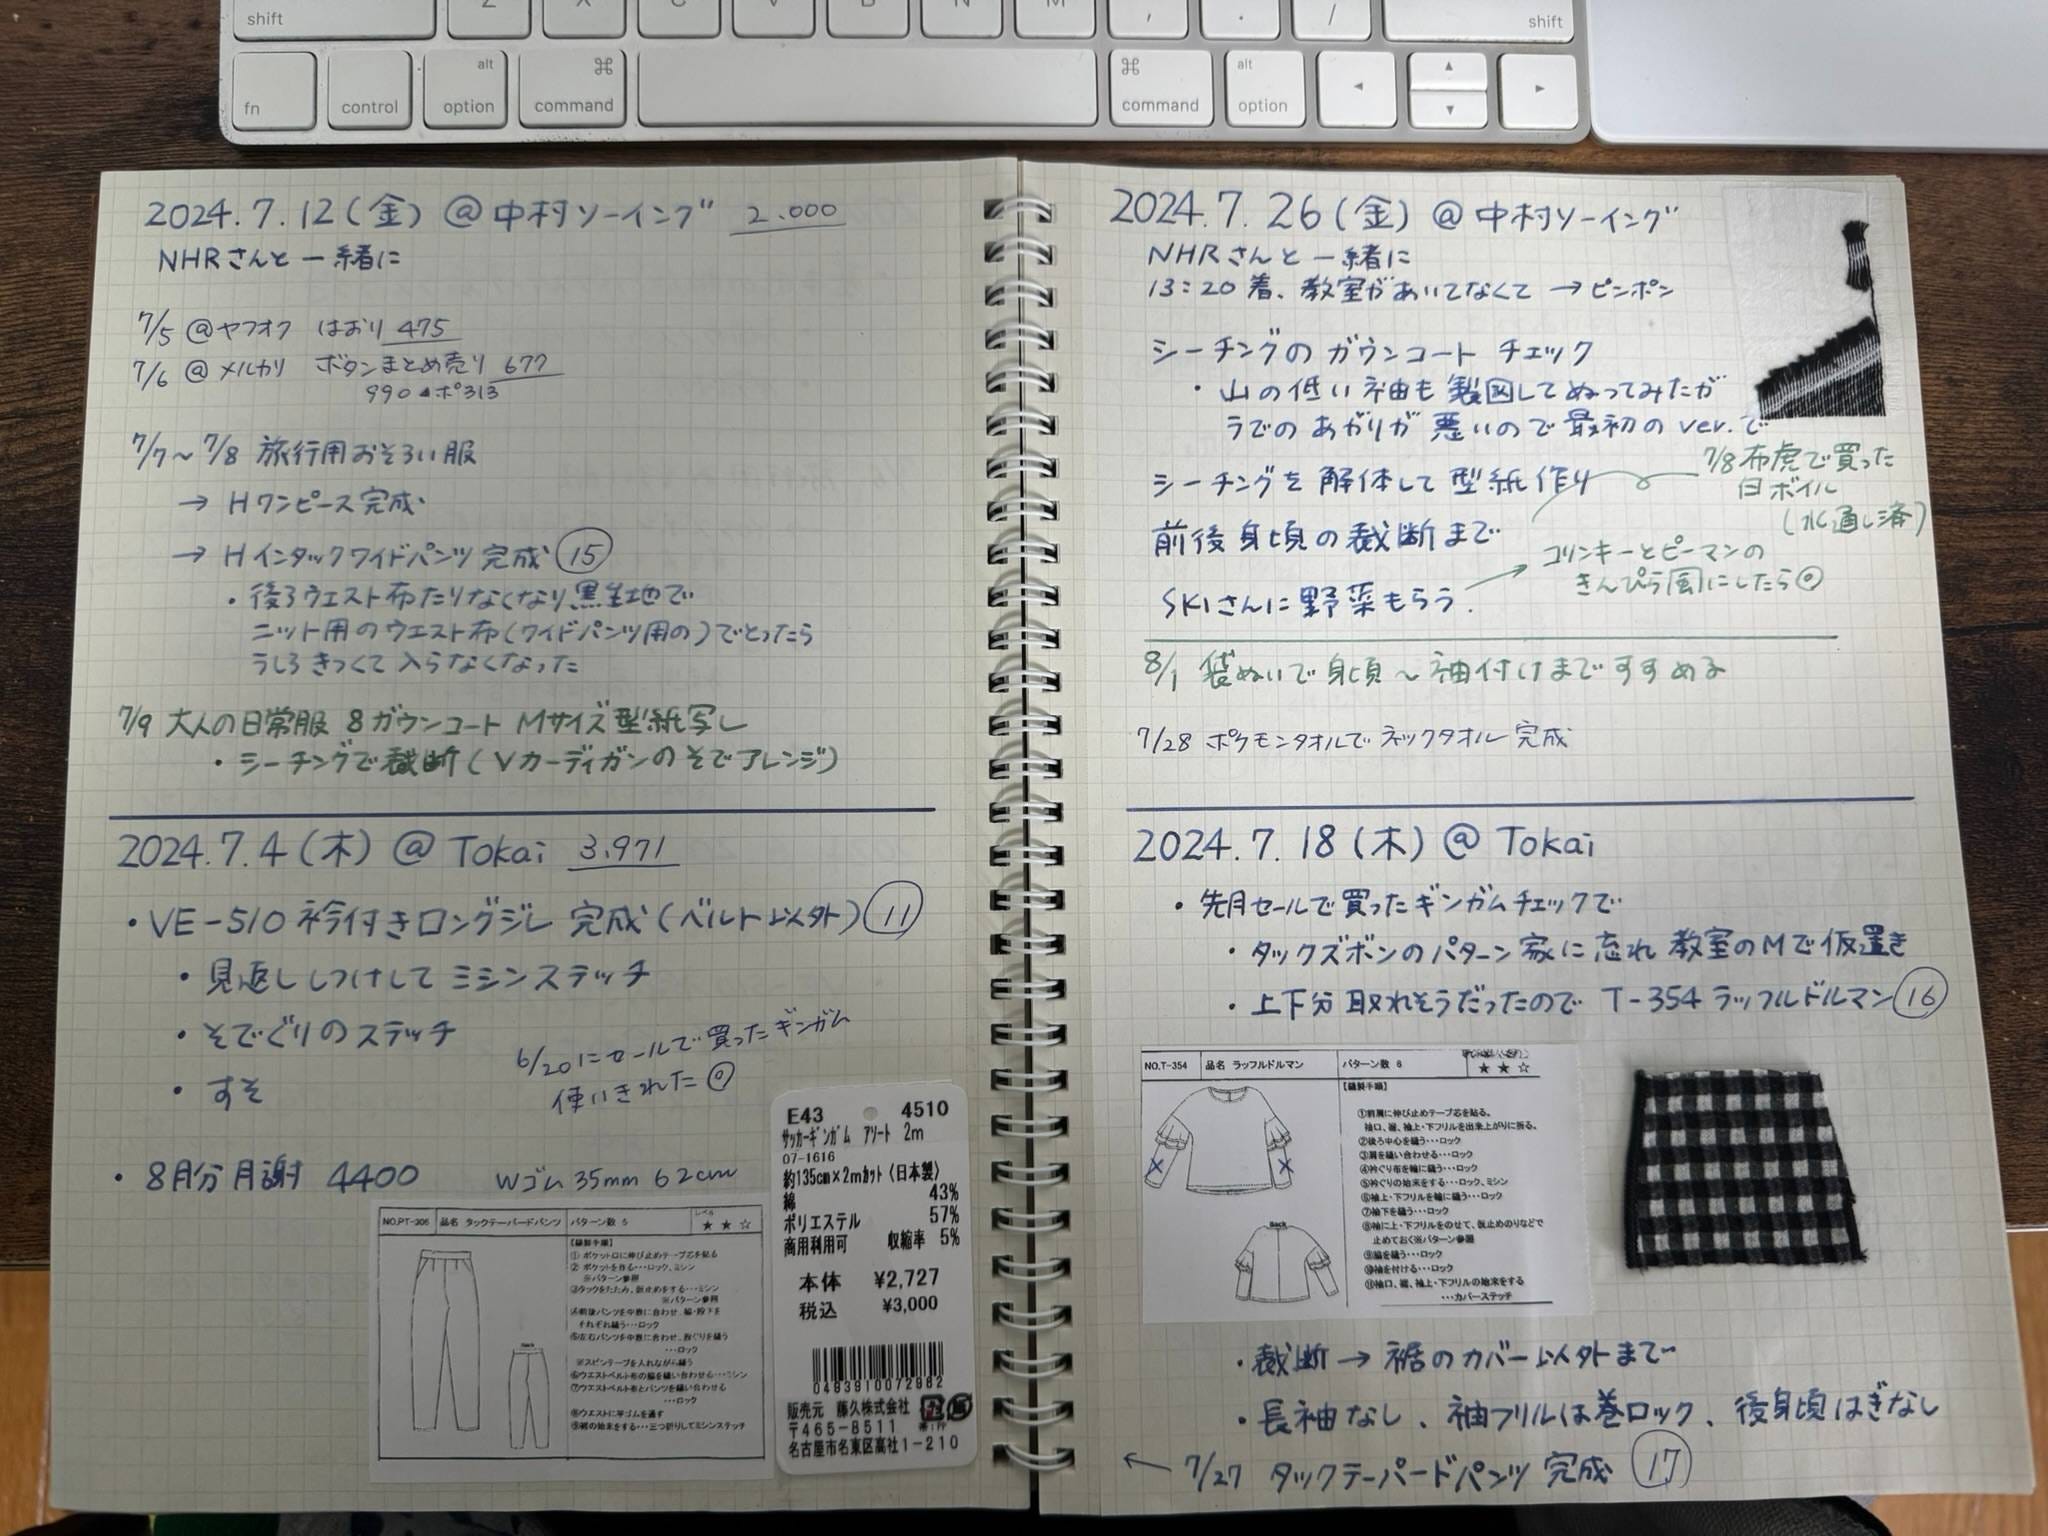 shift
Z
X
C
V
B
N
M
,
.
/
shift
fn
control
alt
option
⌘
command
⌘
command
alt
option
◀
▲
▼
▶
2024.7.12(金) @中村ソーイング 2.000
NHRさんと一緒に
7/5 @ヤフオク はおり 475
7/6 @メルカリ ボタンまとめ売り 677
990 ポ313
7/7〜7/8 旅行用おそろい服
→ Hワンピース完成
→ Hインタックワイドパンツ完成 ⑮
・後ろウエスト布たりなくなり黒生地で
ニット用のウエスト布(ワイドパンツ用の)でとったら
うしろきつくて入らなくなった
7/9 大人の日常服 8 ガウンコート Mサイズ型紙写し
・シーチングで裁断(Vカーディガンのそでアレンジ)
2024.7.4(木) @Tokai 3.971
・VE-510 衿付きロングジレ 完成(ベルト以外) ⑪
・見返ししつけしてミシンステッチ
・そでぐりのステッチ
・すそ
6/20にセールで買ったギンガム
使いきれた◎
・8月分月謝 4400
Wゴム 35mm 62cm
NO.PT-306 品名 タックテーパードパンツ パターン数 5 レベル ★★☆
【縫製手順】
① ポケット口に伸び止めテープ芯を貼る
② ポケットを作る…ロック、ミシン
※パターン参照
③タックをたたみ、仮止めをする…ミシン
※パターン参照
④前後パンツを中表に合わせ、脇・股下を
それぞれ縫う…ロック
⑤左右パンツを中表に合わせ、股ぐりを縫う
…ロック
※スピンテープを入れながら縫う
⑥ウエストベルト布の脇を縫い合わせる…ミシン
⑦ウエストベルト布とパンツを縫い合わせる
…ロック
⑧ウエストに平ゴムを通す
⑨裾の始末をする…三つ折りしてミシンステッチ
Back
E43 4510
サッカーギンガム アソート 2m
07-1616
約135cm×2mカット〈日本製〉
綿 43%
ポリエステル 57%
商用利用可 収縮率 5%
本体 ¥2,727
税込 ¥3,000
0483910072982
販売元 藤久株式会社
〒465-8511
名古屋市名東区高社1-210
2024.7.26(金) @中村ソーイング
NHRさんと一緒に
13:20着、教室があいてなくて → ピンポン
シーチングのガウンコート チェック
・山の低い袖も製図してぬってみたが
うでのあがりが悪いので最初のver.で
シーチングを解体して型紙作り
7/8布虎で買った
白ボイル
(水通し済)
前後身頃の裁断まで
SKIさんに野菜もらう.
コリンキーとピーマンの
きんぴら風にしたら◎
8/1 袋ぬいで身頃〜袖付けまですすめる
7/28 ポケモンタオルでネックタオル完成
2024.7.18(木) @Tokai
・先月セールで買ったギンガムチェックで
・タックズボンのパターン家に忘れ教室のMで仮置き
・上下分取れそうだったので T-354 ラッフルドルマン ⑯
NO.T-354 品名 ラッフルドルマン パターン数 8 ★★☆
【縫製手順】
①前肩に伸び止めテープ芯を貼る。
袖口、裾、袖上・下フリルを出来上がりに折る。
②後ろ中心を縫う…ロック
③肩を縫い合わせる…ロック
④衿ぐり布を輪に縫う…ロック
⑤衿ぐりの始末をする…ロック、ミシン
⑥袖上・下フリルを輪に縫う…ロック
⑦袖下を縫う…ロック
⑧袖に上・下フリルをのせて、仮止めのりなどで
止めておく※パターン参照
⑨脇を縫う…ロック
⑩袖を付ける…ロック
⑪袖口、裾、袖上・下フリルの始末をする
…カバーステッチ
Back
・裁断 → 裾のカバー以外まで
・長袖なし、袖フリルは巻ロック、後身頃はぎなし
← 7/27 タックテーパードパンツ 完成 ⑰